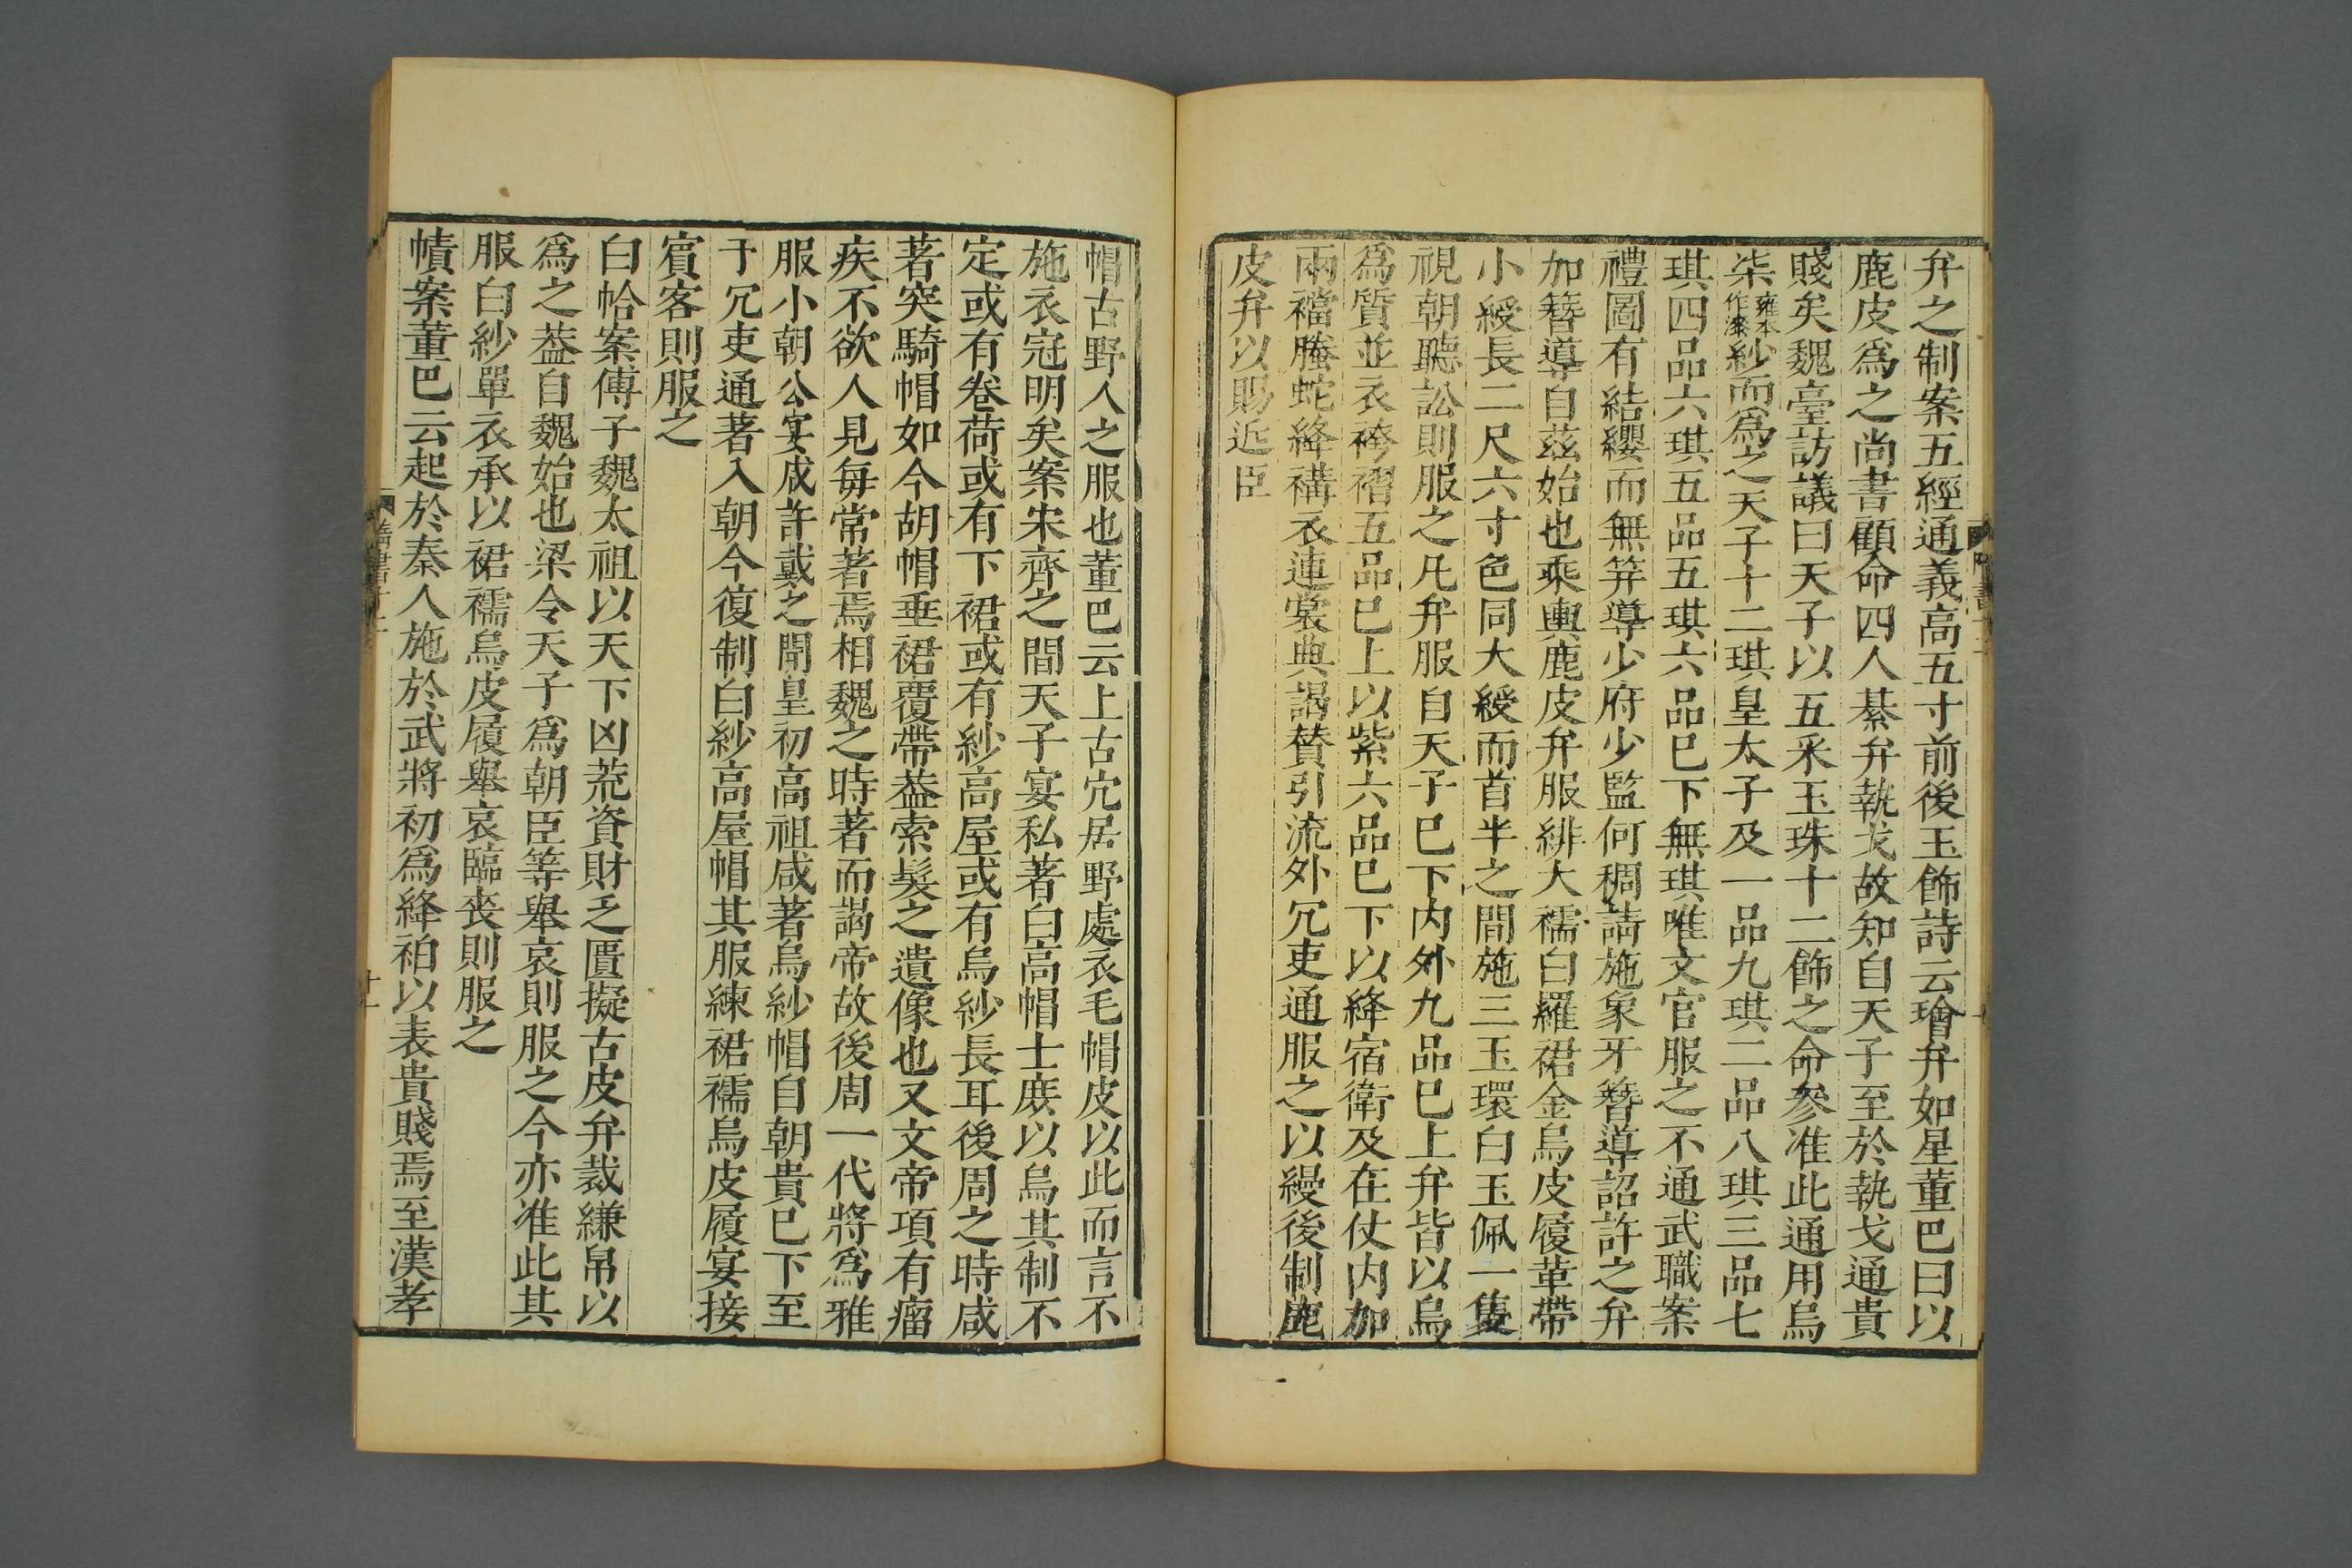 弁之制案五經通義高五寸前後玉飾詩云璯弁如星董巴曰以
鹿皮爲之尚書顧命四人綦弁執戈故知自天子至於執戈通貴
賤矣魏臺訪議曰天子以五采玉珠十二飾之命參准此通用烏
柒雍本作漆紗而爲之天子十二琪皇太子及一品九琪二品八琪三品七
琪四品六琪五品五琪六品巳下無琪唯文官服之不通武職案
禮圖有結纓而無笄導少府少監何稠請施象牙簪導詔許之弁
加簪導自茲始也乘輿鹿皮弁服緋大襦白羅裙金烏皮履革帶
小綬長二尺六寸色同大綬而首半之間施三玉環白玉佩一隻
視朝聽訟則服之凡弁服自天子巳下内外九品巳上弁皆以烏
爲質並衣袴褶五品巳上以紫六品巳下以絳宿衛及在仗内加
兩襠螣蛇絳褠衣連裳典謁贊引流外冗吏通服之以縵後制鹿
皮弁以賜近臣
帽古野人之服也董巴云上古穴居野處衣毛帽皮以此而言不
施衣冠明矣案宋齊之間天子宴私著白高帽士庶以烏其制不
定或有卷荷或有下裙或有紗高屋或有烏紗長耳後周之時咸
著突騎帽如今胡帽垂裙覆帶葢索髮之遺像也又文帝項有瘤
疾不欲人見毎常著焉相魏之時著而謁帝故後周一代將爲雅
服小朝公宴咸許戴之開皇初高祖咸著烏紗帽自朝貴巳下至
于冗吏通著入朝今復制白紗高屋帽其服練裙襦烏皮履宴接
賓客則服之
白帢案傅子魏太祖以天下凶荒資財乏匱擬古皮弁裁縑帛以
爲之葢自魏始也梁令天子爲朝臣等舉哀則服之今亦准此其
服白紗單衣承以裙襦烏皮履舉哀臨喪則服之
幘案董巴云起於秦人施於武將初爲絳袙以表貴賤焉至漢孝
十一